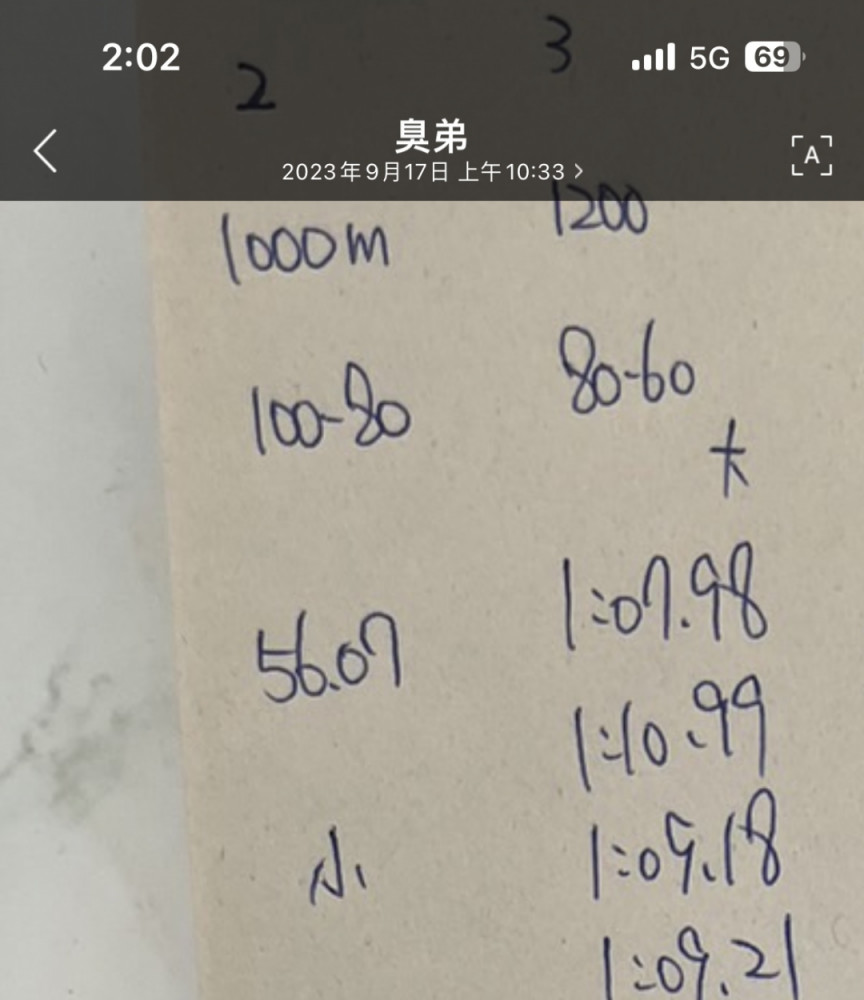 2:02
5G 69
臭弟
2023年9月17日 上午10:33
2 3
1000m 1200
100-80 80-60
大
56.07 1:07.98
1:10.99
小 1:09.18
1:09.21